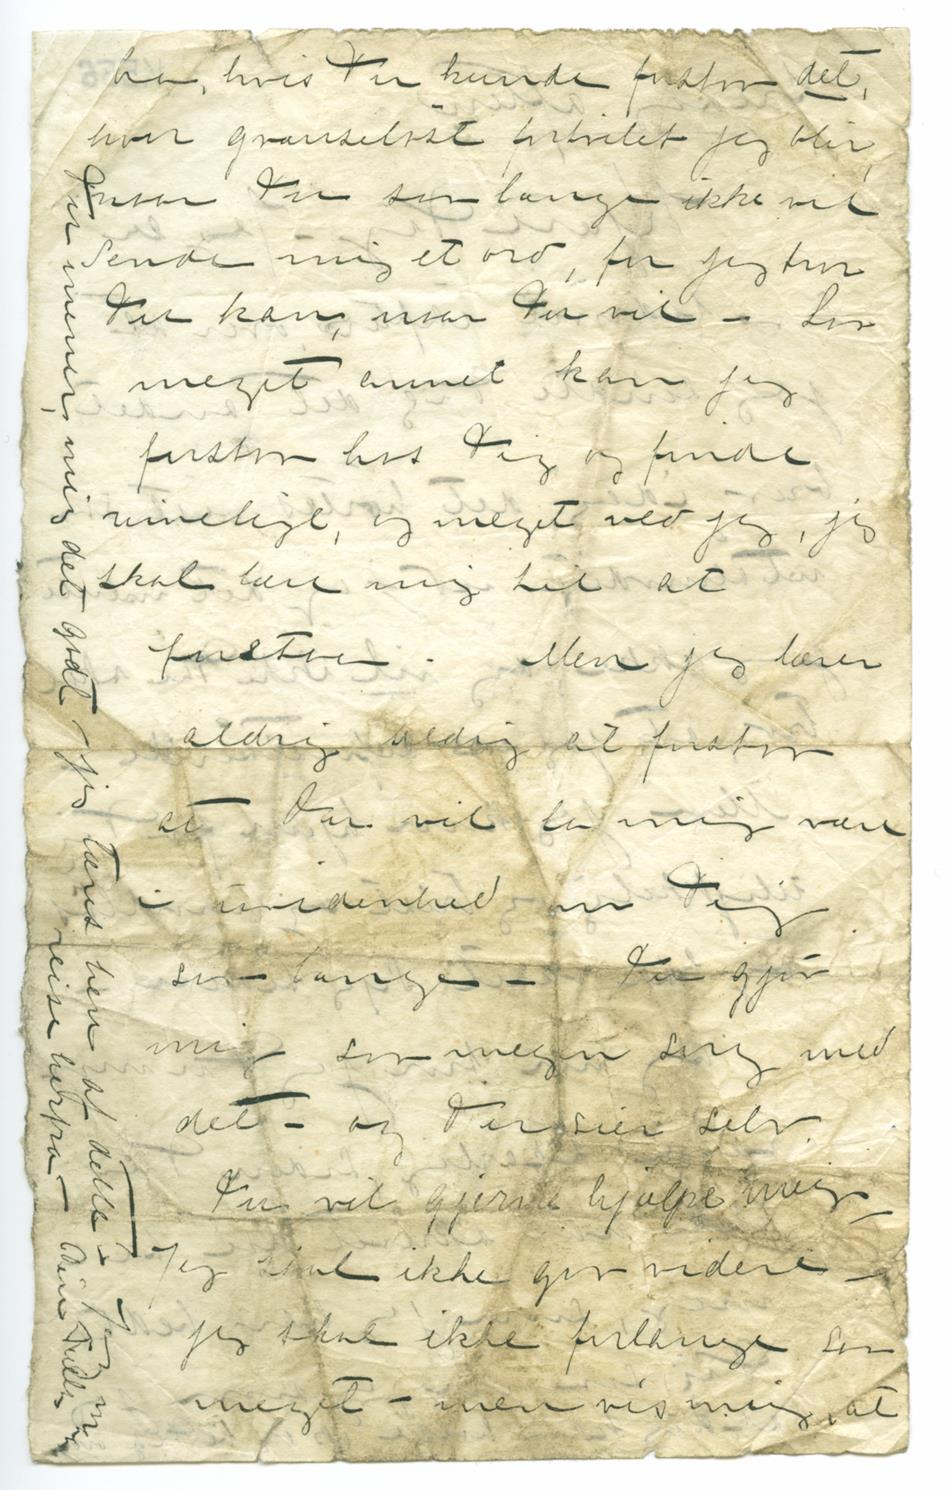 bra, hvis Du kunde forstaa det,
hvor grænseløst fortvilet jeg blir,
naar Du saa længe ikke vil
sende mig et ord, for jeg tror
Du kan, naar Du vil – Saa
meget annet kan jeg
forstaa hos Dig og finde
rimeligt, og meget ved jeg, jeg
skal lære mig til at
forstaa. Men jeg lærer
aldrig aldrig at forstaa
at Du vil la mig være
i uvidenhed om Dig
saa længe – Du gjør
mig saa megen sorg med
det – og Du sier selv
Du vil gjerne hjælpe mig –
Jeg skal ikke gaa videre –
jeg skal ikke forlange saa
meget – men vis mig, at
Du mener mig det godt – Jeg tæres hen af dette – Jeg maa
reise herfra – Din Tulla